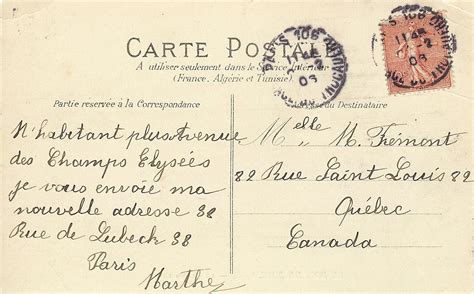 CARTE POSTALE
A utiliser seulement dans le Service Intérieur
(France, Algérie et Tunisie).
Partie réservée à la Correspondance
du Destinataire
N'habitant plus Avenue
des Champs Elysées
je vous envoie ma
nouvelle adresse 38
Rue de Lubeck 38
Paris
Marthe
Melle M. Frémont
82 Rue Saint Louis 82
Québec
Canada
PARIS 106